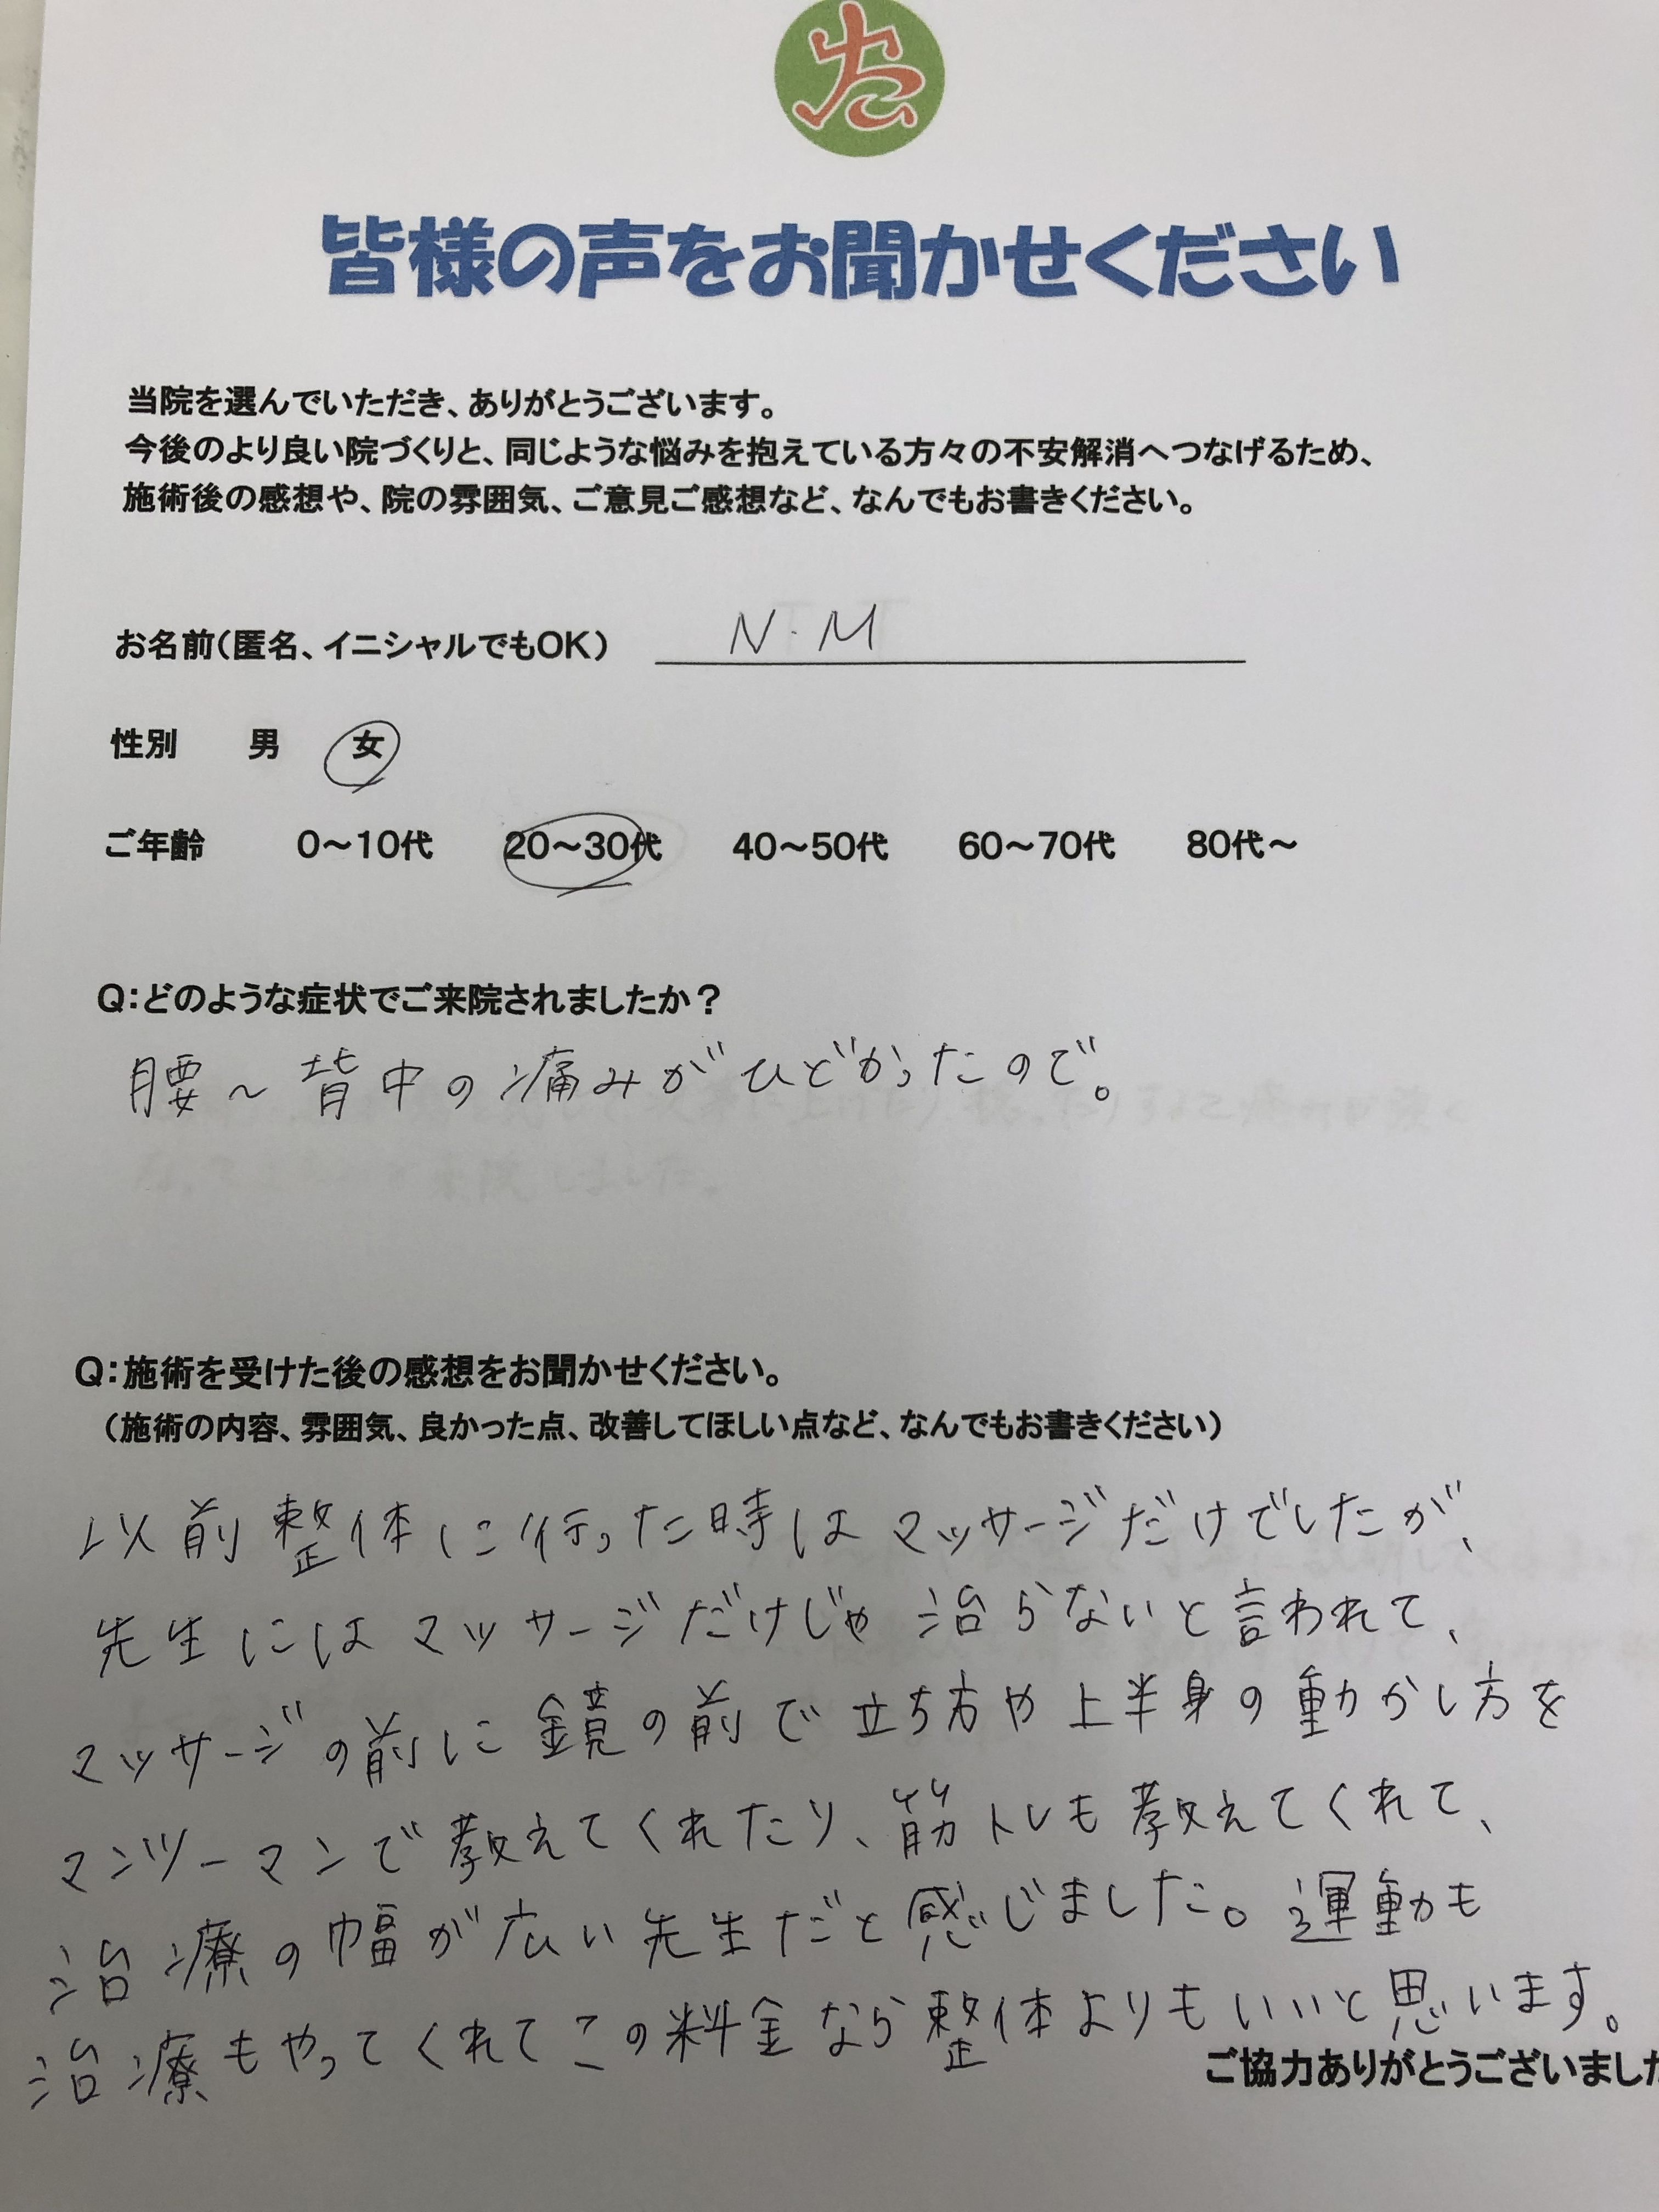 皆様の声をお聞かせください
当院を選んでいただき、ありがとうございます。
今後のより良い院づくりと、同じような悩みを抱えている方々の不安解消へつなげるため、
施術後の感想や、院の雰囲気、ご意見ご感想など、なんでもお書きください。
お名前(匿名、イニシャルでもOK) N・M
性別 男 女
ご年齢 0～10代 20～30代 40～50代 60～70代 80代～
Q:どのような症状でご来院されましたか？
腰～背中の痛みがひどかったので。
Q:施術を受けた後の感想をお聞かせください。
(施術の内容、雰囲気、良かった点、改善してほしい点など、なんでもお書きください)
以前整体に行った時はマッサージだけでしたが、
先生にはマッサージだけじゃ治らないと言われて、
マッサージの前に鏡の前で立ち方や上半身の動かし方を
マンツーマンで教えてくれたり、筋トレも教えてくれて、
治療の幅が広い先生だと感じました。運動も
治療もやってくれてこの料金なら整体よりもいいと思います。
ご協力ありがとうございました